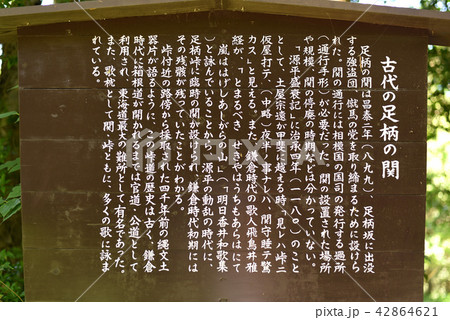 古代の足柄の関
足柄の関は昌泰二年（八九九）、足柄坂に出没
する強盗団、僦馬の党を取り締まるために設けら
れた。関の通行には相模国の国司の発行する過所
（通行手形）が必要だった。関の設置された場所
や規模、関の停廃の時期などは分かっていない。
「源平盛衰記」に治承四年（一一八〇）のこと
として、土屋宗遠が甲斐に越する時「見レハ峠ニ
仮屋打テ、（中略）夜半ノ事ナレハ 関守睡テ驚
カス」と見える。また、鎌倉時代の歌人飛鳥井雅
経が、「とまるべき せきやはうちもあらはにて
嵐ははげしあしがらの山」（明日香井和歌集
）と詠んでいることから、源平の動乱の時代に、
足柄峠に臨時の関が設けられ、鎌倉時代初期には
その残骸が残っていたことがわかる。
峠付近の路傍から採取された四千年前の縄文土
器片が語るように、この峠道の歴史は古く、鎌倉
時代に箱根道が開かれるまでは官道、公道として
利用され、東海道最大の難所として有名であった。
また、歌枕として関・峠ともに、多くの歌に詠ま
れている。
PIXTA
pixta.jp - 42864621